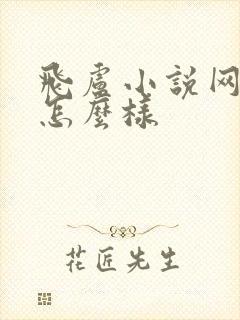 飛盧小說网
怎麼樣
花匠先生